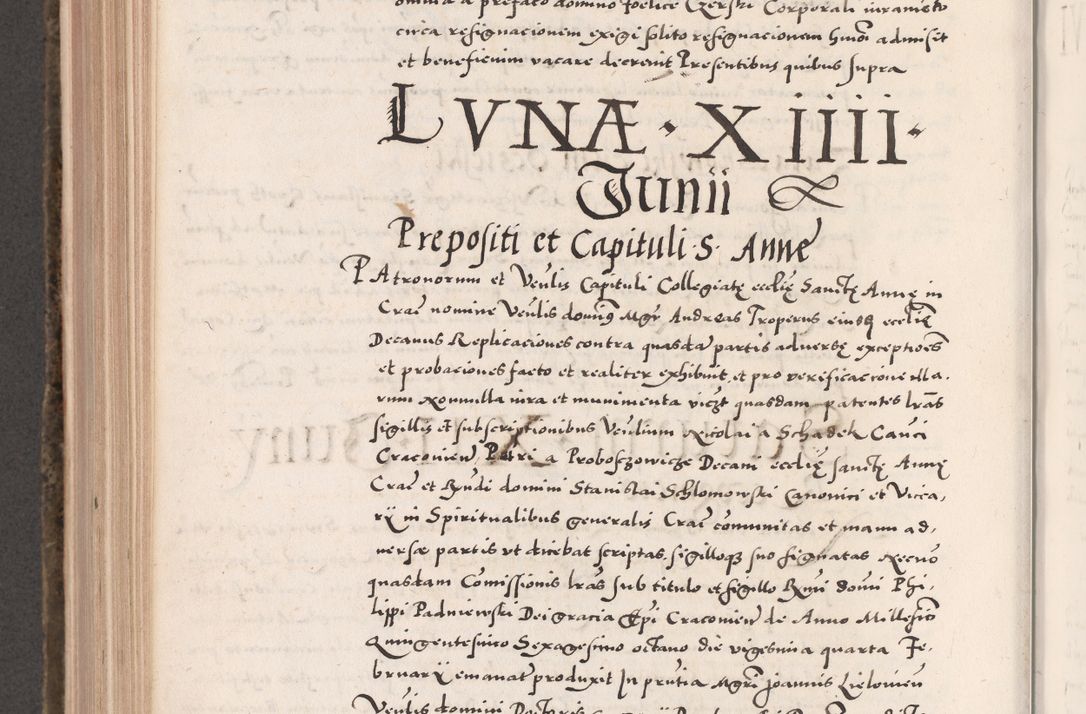 omnia a prefato domino foelice Czerski Corporali iuramento
circa resignacionem exigi solito resignacionem hmōi admisit
et beneficium vacare decreuit Presentibus quibus supra
LVNÆ · XIIII ·
Junii
Prepositi et Capituli · S · Anne
PAtronorum et Venlis Capituli Collegiatę ecclię Sanctę Annę in
Crac nomine Venlis dominus Mgr Andreas Troperus eiusdem ecclię
Decanus Replicaciones contra quasdā partis aduersę exceptioēs
et probaciones facto et realiter exhibuit, et pro verificacione illa,
rum Nonnulla iura et munimenta viczt quasdam patentes lrās
sigillis et subscriptionibus Venlium Nicolai a Schadek Canci
Cracovien, Petri a Proboszowicze Decani ecclię sanctę Annę
Crac et Rndi domini Stanislai Schlomowski Canonici et Vica,
rÿ in Spiritualibus generalis Crac comunitas et manu ad,
uersæ partis vt dicebat scriptas, sigilloqȝ suo signatas Necno
quasdam Comissionis lrās sub titulo et sigillo Rmi domi Phi
lippi Padniewski Dei gracia Epi Cracouien de Anno Millesimo
Quingentesimo Sexagesimo octauo die vigesima quarta Fe,
bruarÿ emanat produxit In prntia Mgri Joannis Lielouien
Venlis domini Doctoris